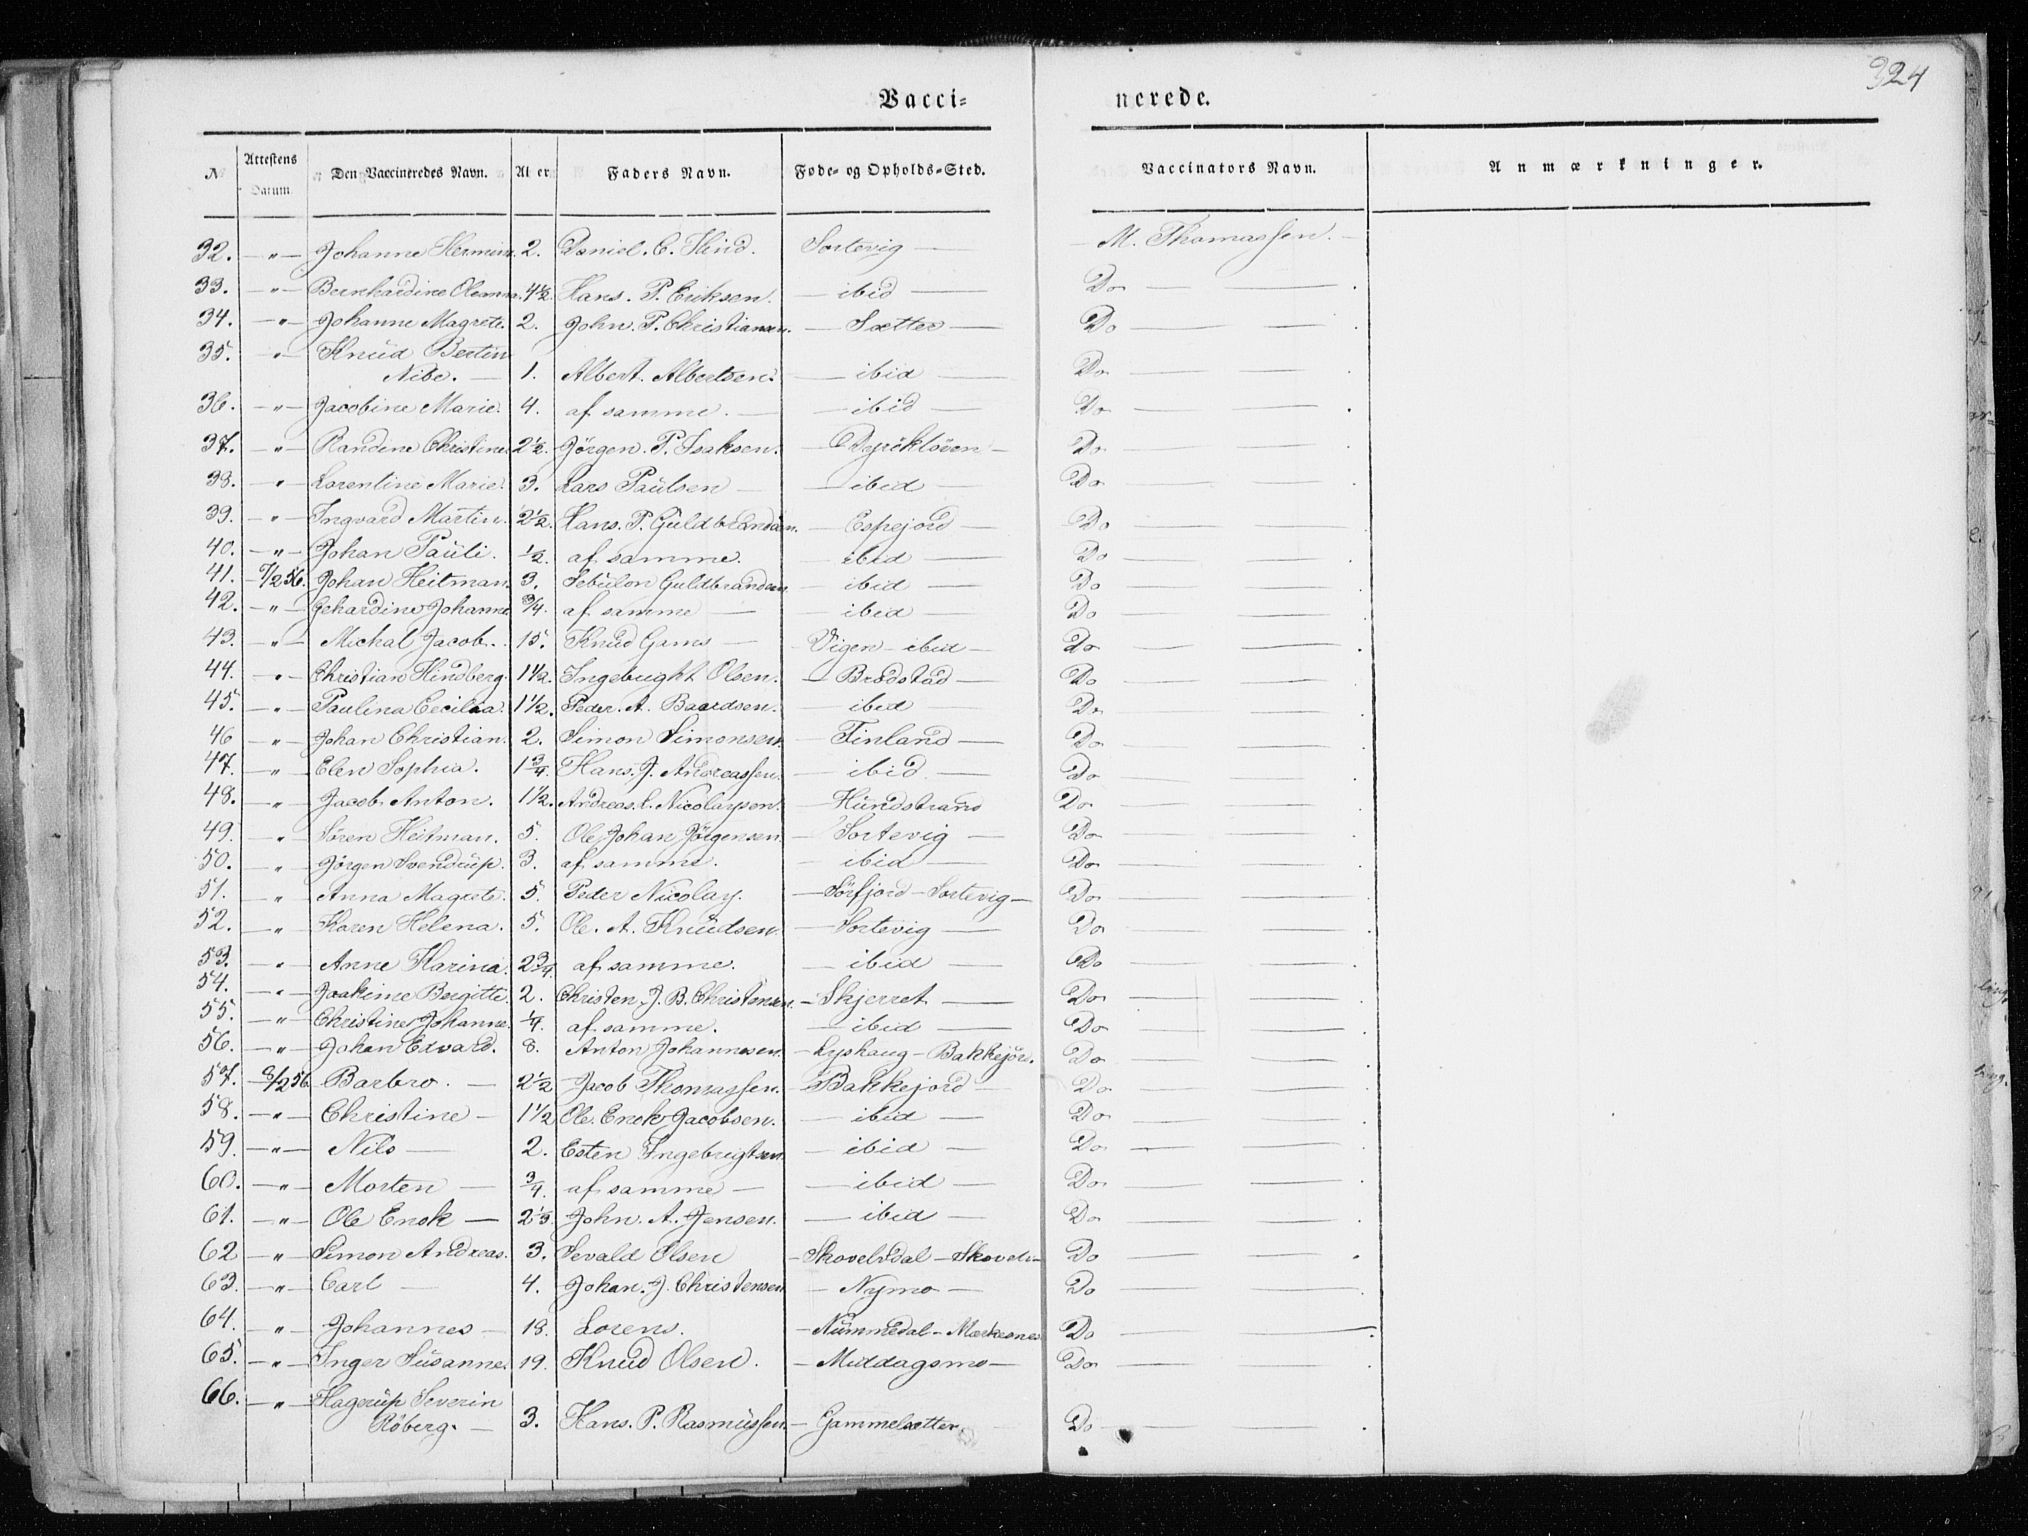 324
Vacci-nerede.
N Attestens Datum. Den Vaccineredes Navn. Alder Faders Navn. Føde- og Opholds-Sted. Vaccinators Navn. Anmærkninger.
32. — " — Johanne Hermine. 2. Daniel. C. Hind. Sortevig — M. Thomassen. —
33. — " — Bernhardine Olemin. 4½ Hans. P. Eriksen. — ibid — Do — — .
34. — " — Johanne Magrete. 2. John. P. Christiansen. — Sætter — Do — —
35. — " — Knud Bertin
Nibe. — 1. Albert. Albertsen. — ibid — Do — — .
36. — " — Jacobine Marie. 4. af samme. — — ibid — Do — — .
37. — " — Randine Christine 2½. Jörgen. P. Isaksen. — Do — — .
38. — " — Lorentine Marie. 3. Lars Paulsen — — ibid — Do — — .
39. — " — Ingvard Martin. 2½. Hans. P. Guldbrandsen. — Espejord — Do — — .
40. — " — Johan Pauli. ½. af samme. — ibid — Do — —
41. 7/2 56. Johan Heitman. 3. Sebulon Guldbrandsen ibid — Do — —
42. — " — Gehardine Johanne ¾. af samme — — ibid — Do — —
43. — " — Michal Jacob. 15. Knud Gams — Vigen — ibid — Do — —
44. — " — Christian Hindberg. 1½. Ingebright Olsen. — Brødstad — Do — —
45. — " — Paulina Cecilia. 1½. Peder. A. Baardsen. — ibid Do —
46 — " — Johan Christian. 2. Simon Simonsen. — Finland — Do — —
47. — " — Elen Sophia. 1¾. Hans. J. Andreassen. — ibid. — Do — —
48. — " — Jacob Anton. 1½. Andreas. L. Nicolaysen. — Hundstrand Do — —
49. " Søren Heitman. 5. Ole Johan Jörgensen. — Sortevig — Do — —
50. " Jörgen Svendrup. 3. af samme. — ibid — Do — —
51. " Anna Magrete. 5. Peder Nicolay. — Sörfjord — Sortevig — Do — —
52. " Karen Helena. 5. Ole. A. Knudsen. — Sortevig — Do — —
53. — " — Anne Karina. 2¾. af samme. — ibid — Do — —
54. — " — Joakime Bergitte. 2. Christen. J. B. Christensen. — Skjerret — Do — —
55. — " — Christine Johanne. ¼. af samme. — ibid — Do — —
56. — " — Johan Edvard. 8. Anton Johannesen. — Lyshaug — Bakkejörd. Do — —
57. 8/2 56 Barbro. — 2½ Jacob Thomassen. — Bakkejord — Do — —
58. — " — Christine — 1½ Ole. Enok Jacobsen. — ibid — Do — —
59. — " — Nils — 2. Esten Ingebrigtsen. — ibid — Do — —
60. — " — Morten — ¾. af samme — — ibid — Do — —
61. — " — Ole Enok — 2⅓. John. A. Jensen. — ibid — Do — —
62 — " — Simon Andreas. 3. Sevald Olsen — Do — .
63. — " — Carl — 4. Johan. J. Christensen — Nymo — Do — —
64. — " — Johannes — 18. Lorens. — Nummedal — Markesnes Do — .
65. — " — Inger Susanne. 19. Knud Olsen. — Middagsmo — Do — —
66. — " — Hagerup Severin
Röberg. — 3. Hans. P. Rasmussen. — Gammelsætter. Do — — .